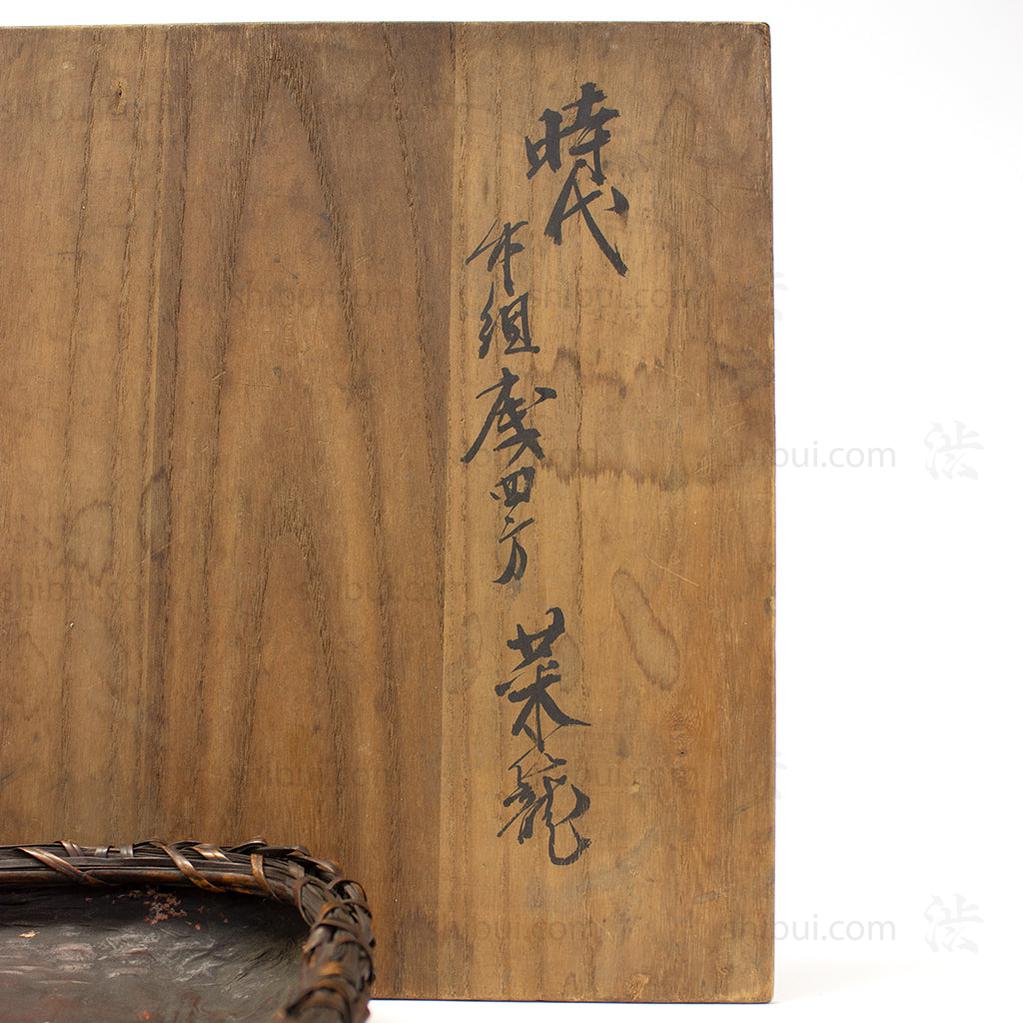 時代
組
四方
菜籠
shibui.com 渋
shibui.com 渋